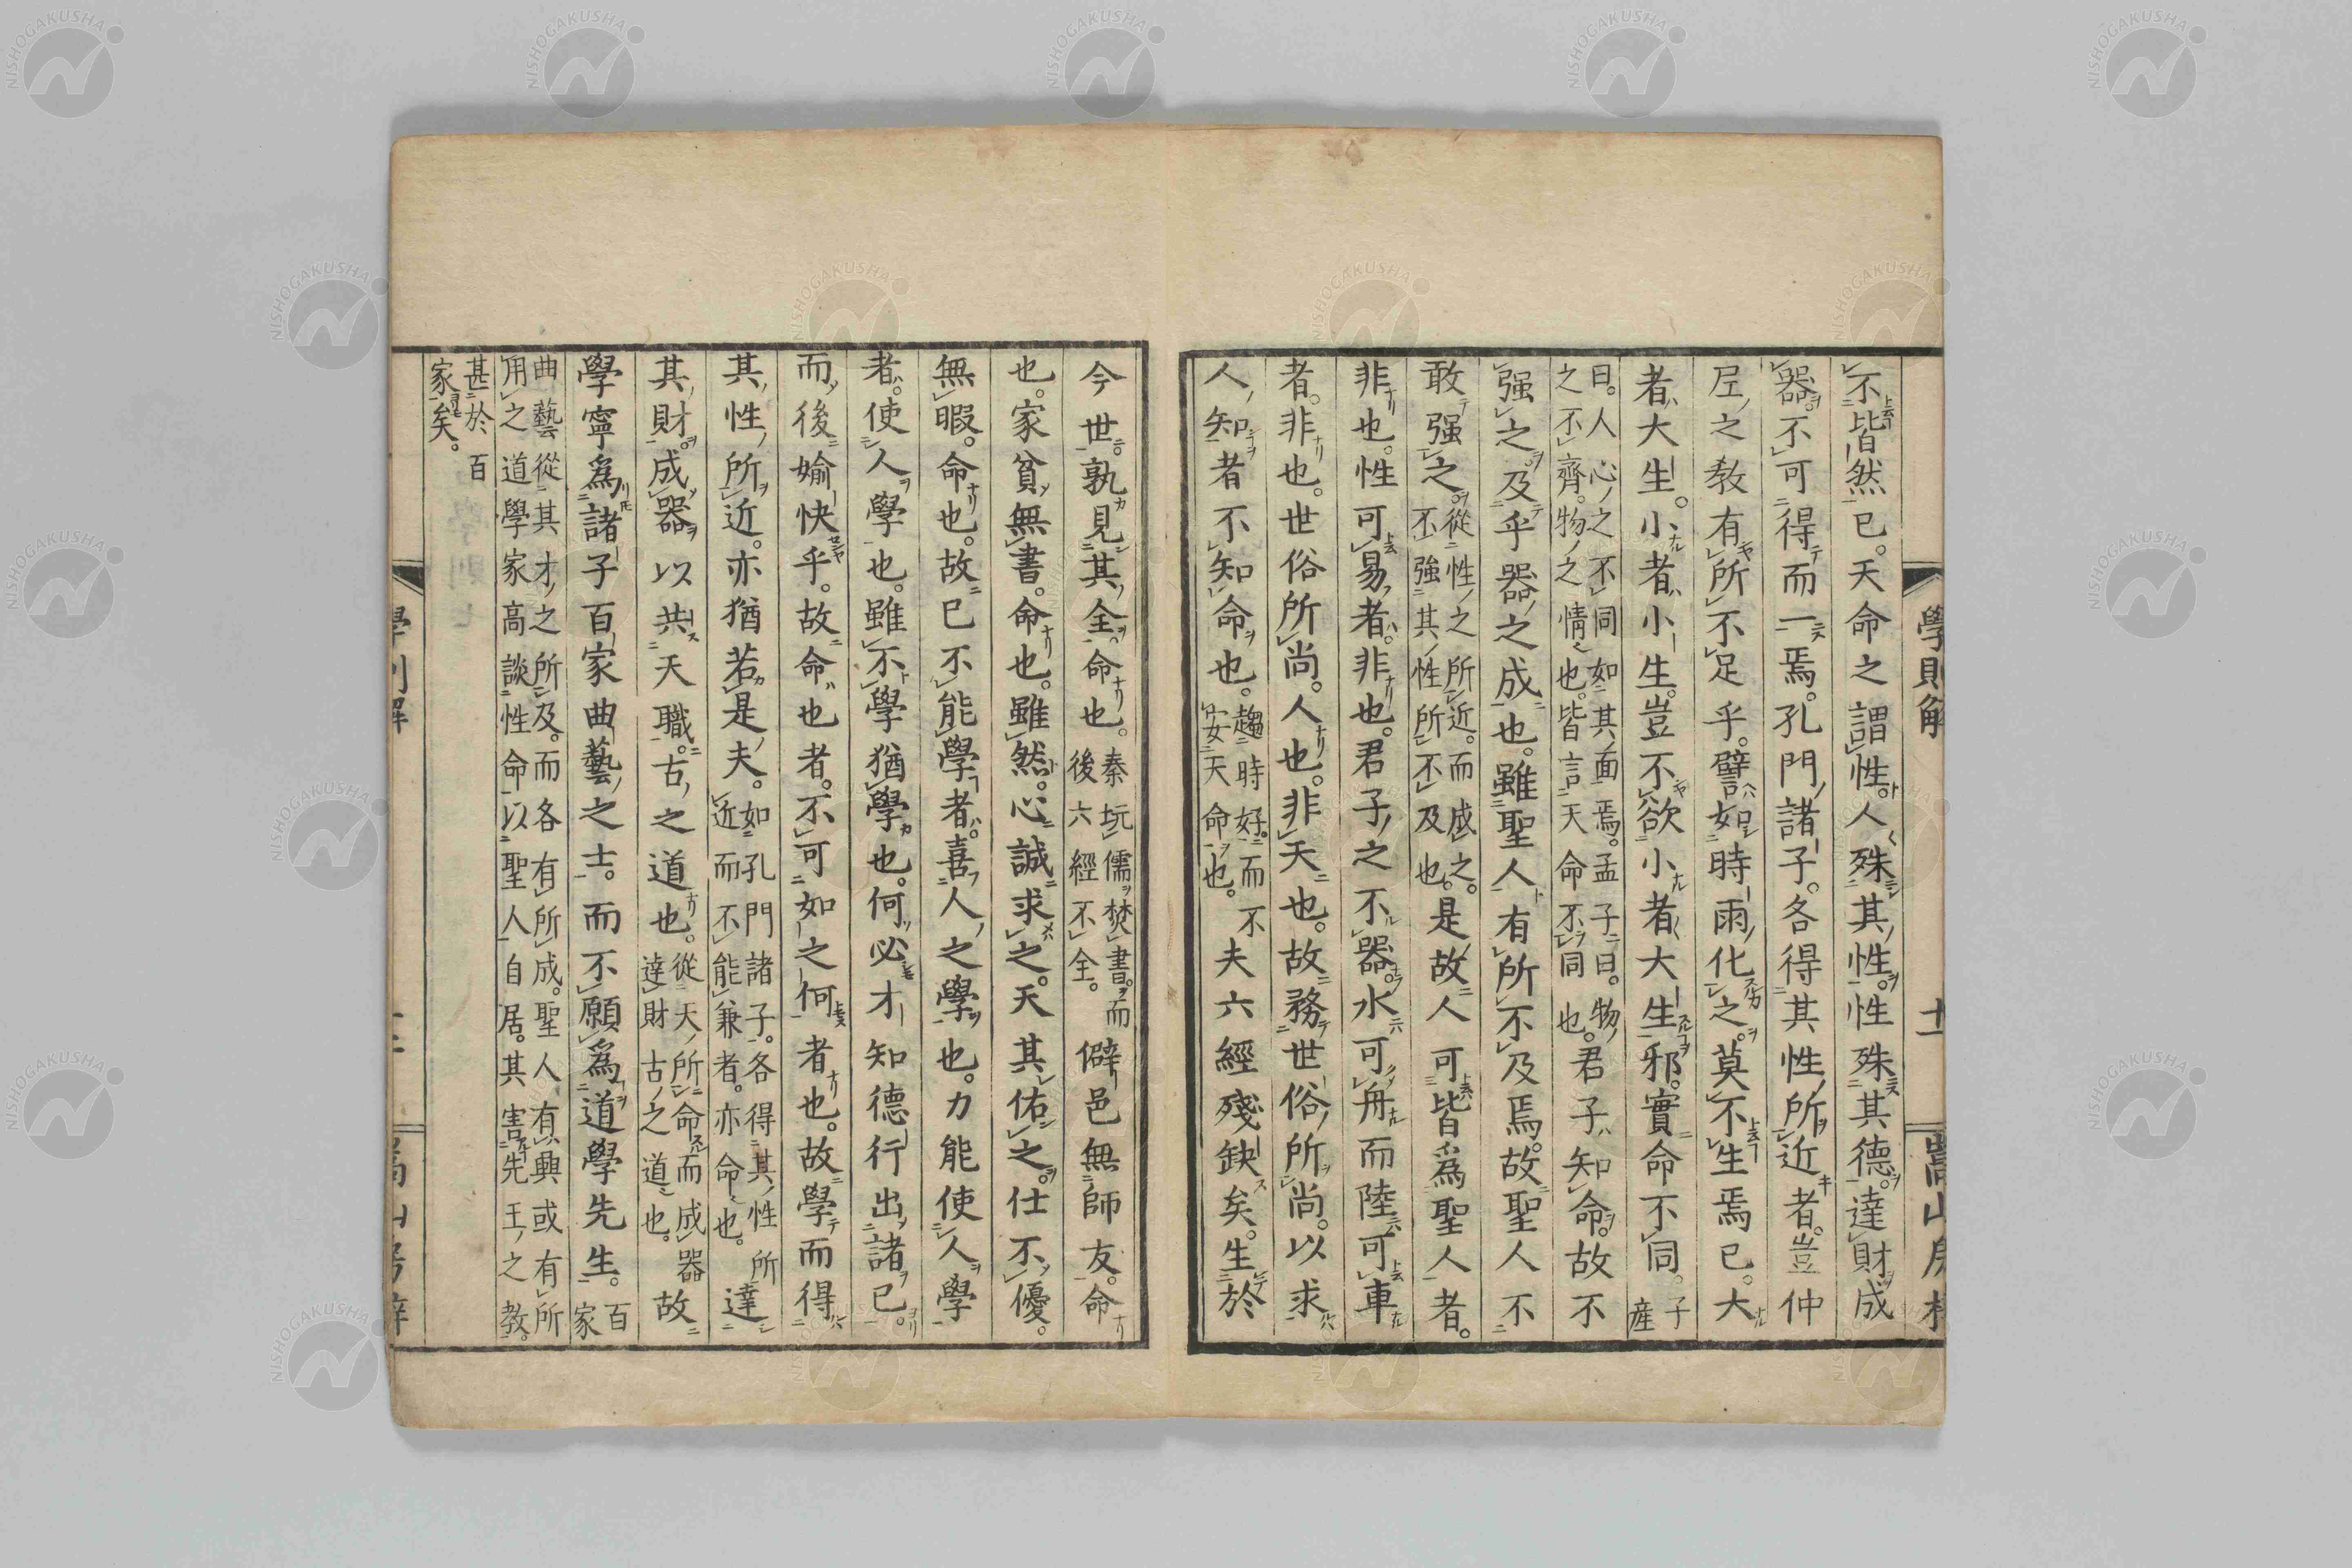 不皆然已。天命之謂性。人殊其性。性殊其德。達財成
器。不可得而一焉。孔門諸子。各得其性所近者。豈仲
尼之教有所不足乎。譬如時雨化之。莫不生焉已。大
者大生。小者小生。豈不欲小者大生邪。實命不同。子產
曰。人心之不同如其面焉。孟子曰。物
之不齊。物之情也。皆言天命不同也。君子知命。故不
强之。及乎器之成也。雖聖人有所不及焉。故聖人不
敢强之。從性之所近。而成之。
不強其性所不及也。是故人可皆爲聖人者。
非也。性可易者。非也。君子之不器。水可舟而陸可車
者。非也。世俗所尚。人也。非天也。故務世俗所尚。以求
人知者不知命也。趨時好。而不
安天命也。夫六經殘缺矣。生於
學則解
十一
嵩山房梓
今世。孰見其全。命也。秦坑儒焚書。而
後六經不全。僻邑無師友。命
也。家貧無書。命也。雖然。心誠求之。天其佑之。仕不優。
無暇。命也。故已不能學者。喜人之學也。力能使人學
者。使人學也。雖不學猶學也。何必才知德行出諸已。
而後媮快乎。故命也者。不可如之何者也。故學而得
其性所近。亦猶若是夫。如孔門諸子。各得其性所
近而不能兼者。亦命也。達
其財。成器以共天職。古之道也。從天所命而成器
達財古之道也。故
學寧爲諸子百家曲藝之士。而不願爲道學先生。百家
曲藝從其才之所及。而各有所成。聖人有興或有所
用之道學家高談性命以聖人自居。其害先王之教。
甚於百
家矣。
學則解
嵩山房梓
NISHOGAKUSHA
NISHOGAKUSHA
NISHOGAKUSHA
NISHOGAKUSHA
NISHOGAKUSHA
NISHOGAKUSHA
NISHOGAKUSHA
NISHOGAKUSHA
NISHOGAKUSHA
NISHOGAKUSHA
NISHOGAKUSHA